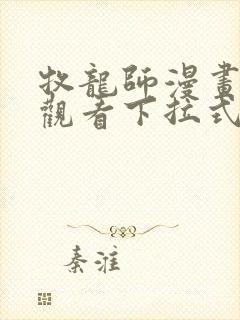 牧龍師漫畫
觀看下拉式
秦淮